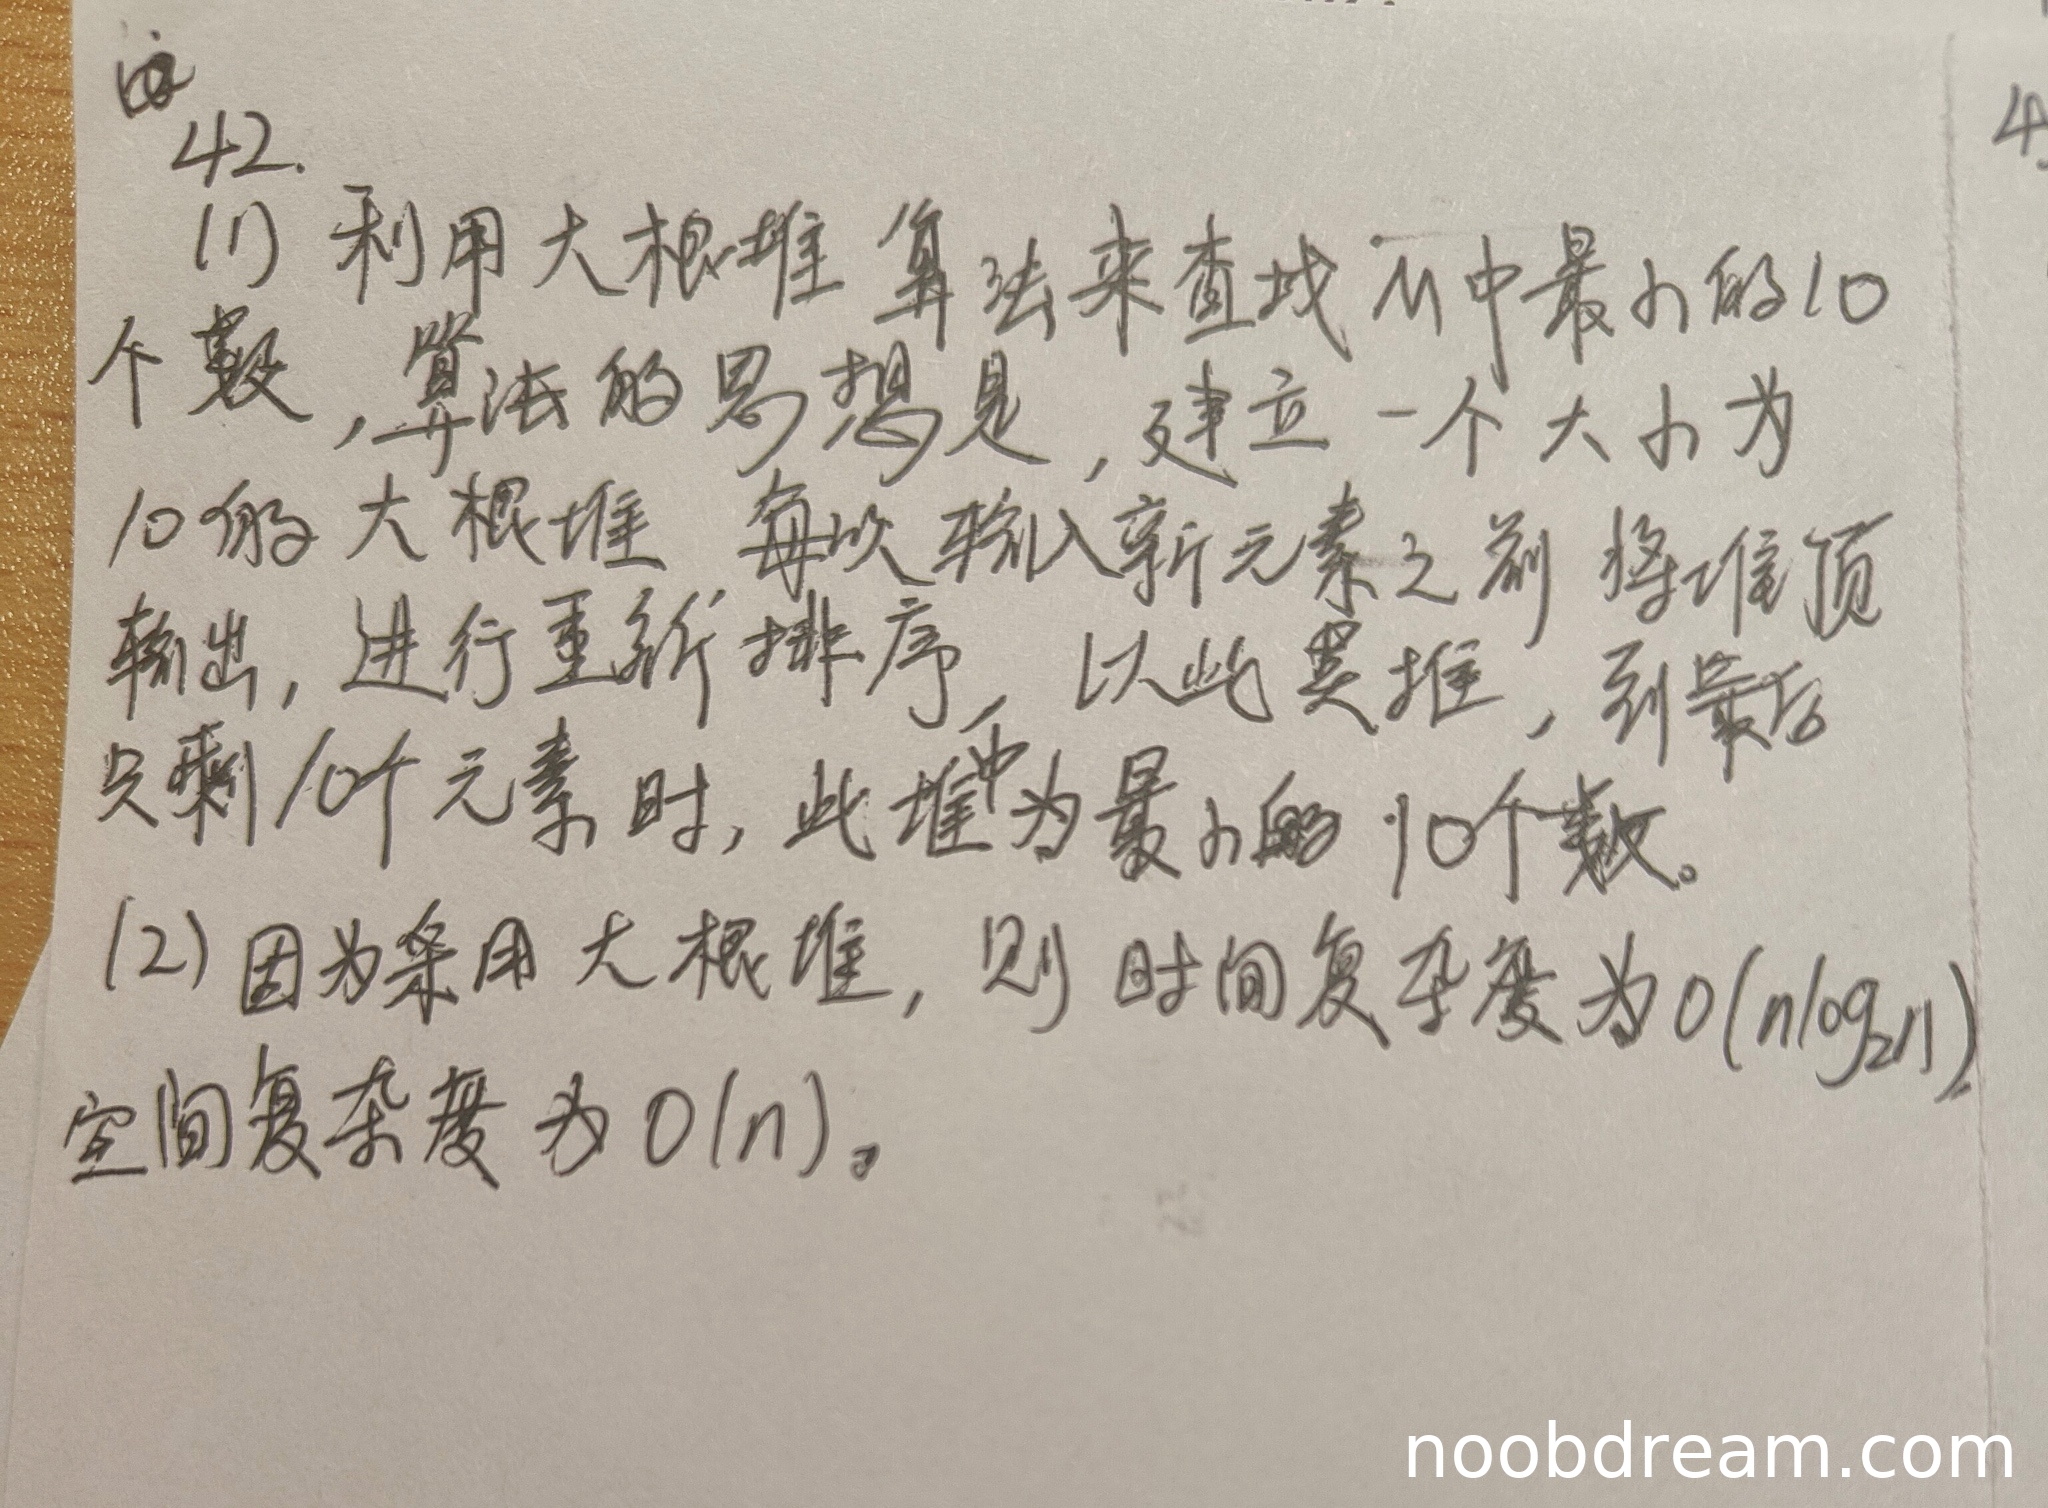 42.
(1) 利用大根堆算法来查找M中最小的10
个数,算法的思想是,建立一个大小为
10的大根堆 每次输入新元素之前 将堆顶
输出,进行重新排序,以此类推,到最后
只剩10个元素时,此堆中为最小的10个数。
(2) 因为采用大根堆,则时间复杂度为O(nlog₂n)
空间复杂度为O(n)。
noobdream.com